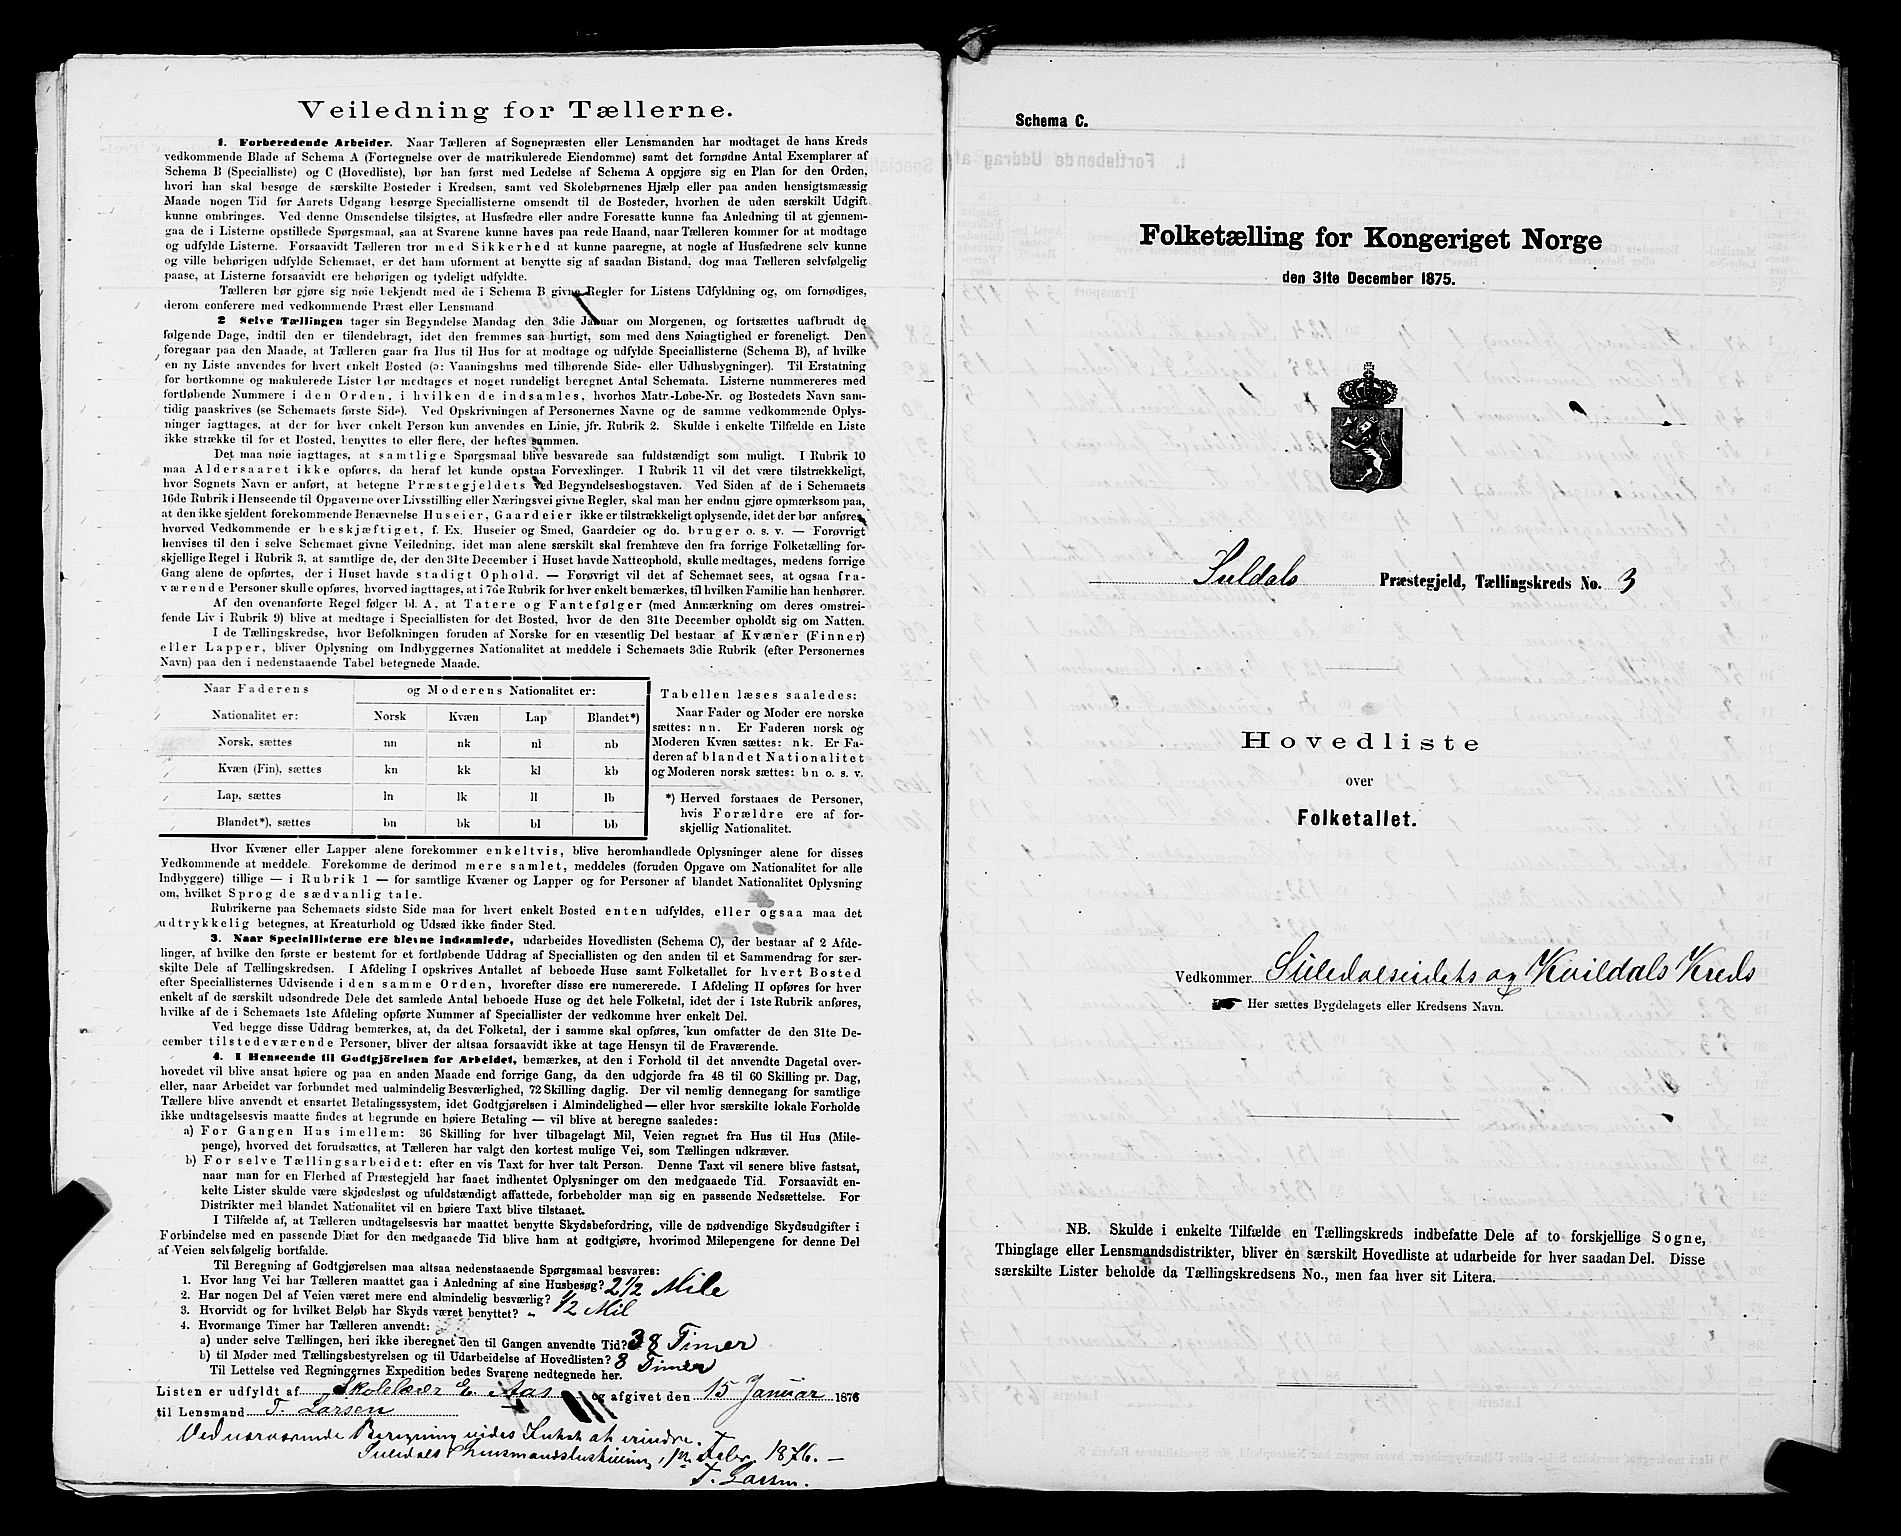 Veiledning for Tællerne.
1. Forberedende Arbeider. Naar Tælleren af Sognepræsten eller Lensmanden har modtaget de hans Kreds
vedkommende Blade af Schema A (Fortegnelse over de matrikulerede Eiendomme) samt det fornødne Antal Exemplarer af
Schema B (Specialliste) og C (Hovedliste), bør han først med Ledelse af Schema A opgjøre sig en Plan for den Orden,
hvori han skal besøge de særskilte Bosteder i Kredsen, samt ved Skolebørnenes Hjælp eller paa anden hensigtsmæssig
Maade nogen Tid før Aarets Udgang besørge Speciallisterne omsendt til de Bosteder, hvorhen de uden særskilt Udgift
kunne ombringes. Ved denne Omsendelse tilsigtes, at Husfædre eller andre Foresatte kunne faa Anledning til at gjennem-
gaa de i Listerne opstillede Spørgsmaal, saa at Svarene kunne haves paa rede Haand, naar Tælleren kommer for at modtage
og udfylde Listerne. Forsaavidt Tælleren tror med Sikkerhed at kunne paaregne, at nogle af Husfædrene selv kunne
og ville behørigen udfylde Schemaet, er det ham uforment at benytte sig af saadan Bistand, dog maa Tælleren selvfølgelig
paase, at Listerne forsaavidt ere behørigen og tydeligt udfyldte.
Tælleren bør gjøre sig nøie bekjendt med de i Schema B givne Regler for Listens Udfyldning og, om fornødiges,
derom conferere med vedkommende Præst eller Lensmand
2 Selve Tællingen tager sin Begyndelse Mandag den 3die Januar om Morgenen, og fortsættes uafbrudt de
følgende Dage, indtil den er tilendebragt, idet den fremmes saa hurtigt, som med dens Nøiagtighed er foreneligt. Den
foregaar paa den Maade, at Tælleren gaar fra Hus til Hus for at modtage og udfylde Speciallisterne (Schema B), af hvilke
en ny Liste anvendes for hvert enkelt Bosted (ɔ: Vaaningshus med tilhørende Side- eller Udhusbygninger). Til Erstatning
for bortkomne og makulerede Lister bør medtages et noget rundeligt beregnet Antal Schemata. Listerne nummereres med
fortløbende Nummere i den Orden, i hvilken de indsamles, hvorhos Matr-Løbe-Nr. og Bostedets Navn sam-
tidig paaskrives (se Schemaets første Side). Ved Opskrivningen af Personernes Navne og de samme vedkommende Oplys-
ninger iagttages, at der for hver enkelt Person kun anvendes en Linie, jfr. Rubrik 2. Skulde i enkelte Tilfælde en Liste
ikke strække til for et Bosted, benyttes to eller flere, der heftes sammen.
Det maa nøie iagttages, at samtlige Spørgsmaal blive besvarede saa fuldstændigt som muligt. I Rubrik 10
maa Aldersaaret ikke opføres, da heraf let kunde opstaa Forvexlinger. I Rubrik 11 vil det være tilstrækkeligt,
hvor Sognets Navn er anført, at betegne Præstegjeldets ved Begyndelsesbogstaven. Ved Siden af de i Schemaets
16de Rubrik i Henseende til Opgaverne over Livsstilling eller Næringsvei givne Regler, skal man her endnu gjøre opmærksom paa,
at den ikke sjeldent forekommende Benævnelse Huseier, Gaardeier ikke er tilstrækkeligt oplysende, idet der bør anføres,
hvorved Vedkommende er beskjæftiget, f. Ex. Huseier og Smed, Gaardeier og do. bruger o. s. v. — Forøvrigt
henvises til den i selve Schemaet givne Veiledning, idet man alene særskilt skal fremhæve den fra forrige Folketælling for-
skjellige Regel i Rubrik 3, at samtlige de, der den 31te December i Huset havde Natteophold, skulle medtages, medens forrige
Gang alene de opførtes, der i Huset havde stadigt Ophold. — Forøvrigt vil det af Schemaet sees, at ogsaa fra-
værende Personer skulle opføres, hvorved iagttages, at i 7de Rubrik for hver enkelt bemærkes, til hvilken Familie han henhører.
Af den ovenanførte Regel følger bl. A, at Tatere og Fantefølger (med Anmærkning om deres omstrei-
fende Liv i Rubrik 9) blive at medtage i Speciallisten for det Bosted, hvor de den 31te December opholdt sig om Natten.
I de Tællingskredse, hvor Befolkningen foruden af Norske for en væsentlig Del bestaar af Kvæner (Finner)
eller Lapper, bliver Oplysning om Indbyggernes Nationalitet at meddele i Schemaets 3die Rubrik (efter Personernes
Navn) paa den i nedenstaaende Tabel betegnede Maade.
Naar Faderens og Moderens Nationalitet er:
Nationalitet er: Norsk Kvæn Lap Blandet*)
Norsk, sættes nn nk nl nb
Kvæn (Fin), sættes kn kk kl kb
Lap, sættes ln lk ll lb
Blandet*), sættes bn bk bl bb
Tabellen læses saaledes:
Naar Fader og Moder ere norske
sættes: nn. Er Faderen norsk og
Moderen Kvæn sættes: nk. Er Fa-
deren af blandet Nationalitet
og Moderen norsk sættes: bn o. s. v.
*) Herved forstaaes de Personer,
hvis Forældre ere af for-
skjellig Nationalitet.
Hvor Kvæner eller Lapper alene forekommer enkeltvis, blive heromhandlede Oplysninger alene for disses
Vedkommende at meddele. Forekomme de derimod mere samlet, meddeles (foruden Opgave om Nationalitet for alle
Indbyggere) tillige — i Rubrik 1 — for samtlige Kvæner og Lapper og for Personer af blandet Nationalitet Oplysning
om, hvilket Sprog de sædvanlig tale.
Rubrikerne paa Schemaets sidste Side maa for hvert enkelt Bosted enten udfyldes, eller ogsaa maa det
udtrykkelig betegnes, at Kreaturhold og Udsæd ikke finder Sted.
3. Naar Speciallisterne ere blevne indsamlede, udarbeides Hovedlisten (Schema C), der bestaar af 2 Afde-
linger, af hvilke den første er bestemt for et fortløbende Uddrag af Speciallisten og den anden til et Sammendrag for sær-
skilte Dele af Tællingskredsen. I Afdeling I opskrives Antallet af beboede Huse samt Folketallet for hvert Bosted
efter Speciallisternes Udvisende i den samme Orden, hvorefter disse ere numererede. I Afdeling II opføres for hver
enkelt af de særskilt udsondrede Dele det samlede Antal beboede Huse og det hele Folketal, idet der i 1ste Rubrik anføres,
hvilke af de i Schemaets 1ste Afdeling opførte Nummer af Speciallister der vedkomme hver enkelt Del.
Ved begge disse Uddrag bemærkes, at, da det Folketal, der i samme skal opføres, kun omfatter de den 31te De-
cember tilstedeværende Personer, bliver der altsaa forsaavidt ikke at tage Hensyn til de Fraværende.
4. I Henseende til Godtgjörelsen for Arbeidet, bemærkes, at den i Forhold til det anvendte Dagetal over-
hovedet vil blive ansat høiere og paa en anden Maade end forrige Gang, da den udgjorde fra 48 til 60 Skilling pr. Dag,
eller, naar Arbeidet var forbundet med ualmindelig Besværlighed, 72 Skilling daglig. Der vil nemlig dennegang for samtlige
Tællere blive anvendt et ensartet Betalingssystem, idet Godtgjørelsen i Almindelighed — eller hvor særskilte lokale Forholde
ikke undtagelsesvis maatte findes at begrunde en høiere Betaling — vil blive at beregne saaledes:
a) For Gangen Hus imellem: 36 Skilling for hver tilbagelagt Mil, Veien regnet fra Hus til Hus (Mile-
penge), hvorved det forudsættes, at Tælleren har valgt den kortest mulige Vei, som Tællingen udkræver.
b) For selve Tællingsarbeidet: efter en vis Taxt for hver talt Person. Denne Taxt vil senere blive fastsat,
naar man for en Flerhed af Præstegjeld har faaet indhentet Oplysninger om den medgaaede Tid. Forsaavidt en-
kelte Lister skulde være skjødesløst og ufuldstændigt affattede, forbeholder man sig en passende Nedsættelse. For
Distrikter med blandet Nationalitet vil en høiere Taxt blive tilstaaet.
I Tilfælde af, at Tælleren undtagelsesvis har maattet benytte Skydsbefordring, ville de nødvendige Skydsudgifter i
Forbindelse med en passende Diæt for den medgaaede Tid blive ham at godtgjøre, hvorimod Milepengene for denne Del
af Veien selvfølgelig bortfalde.
Til Beregning af Godtgjørelsen maa altsaa nedenstaaende Spørgsmaal besvares:
1. Hvor lang Vei har Tælleren maattet gaa i Anledning af sine Husbesøg? 2 1/2 Mile
2. Har nogen Del af Veien været mere end almindelig besværlig? 1/2 Mil
3. Hvorvidt og for hvilket Beløb har Skyds været benyttet? "
4. Hvormange Timer har Tælleren anvendt:
a) under selve Tællingen, heri ikke iberegnet den til Gangen anvendte Tid? 38 Timer
b) til Møder med Tællingsbestyrelsen og til Udarbeidelse af Hovedlisten? 8 Timer
Til Lettelse ved Regningernes Expedition bedes Svarene nedtegnede her.
Listen er udfyldt af Skolelærer E. Aas og afgivet den 15 Januar 1876
til Lensmand T. Larsen
Vedværværende Beregning vides Intet at erindre.
Suledals Lensmandsbestilling, Febr 1876. —
T. Larsen.
Schema C.
Folketælling for Kongeriget Norge
den 31te December 1875.
Suldals Præstegjeld, Tællingskreds No. 3
Hovedliste
over
Folketallet.
Vedkommer Suledalseidets og Kvildals Kreds
Her sættes Bygdelagets eller Kredsens Navn.
NB. Skulde i enkelte Tilfælde en Tællingskreds indbefatte Dele af to forskjellige Sogne,
Thinglage eller Lensmandsdistrikter, bliver en særskilt Hovedliste at udarbeide for hver saadan Del. Disse
særskilte Lister beholde da Tællingskredsens No., men faa hver sit Litera.